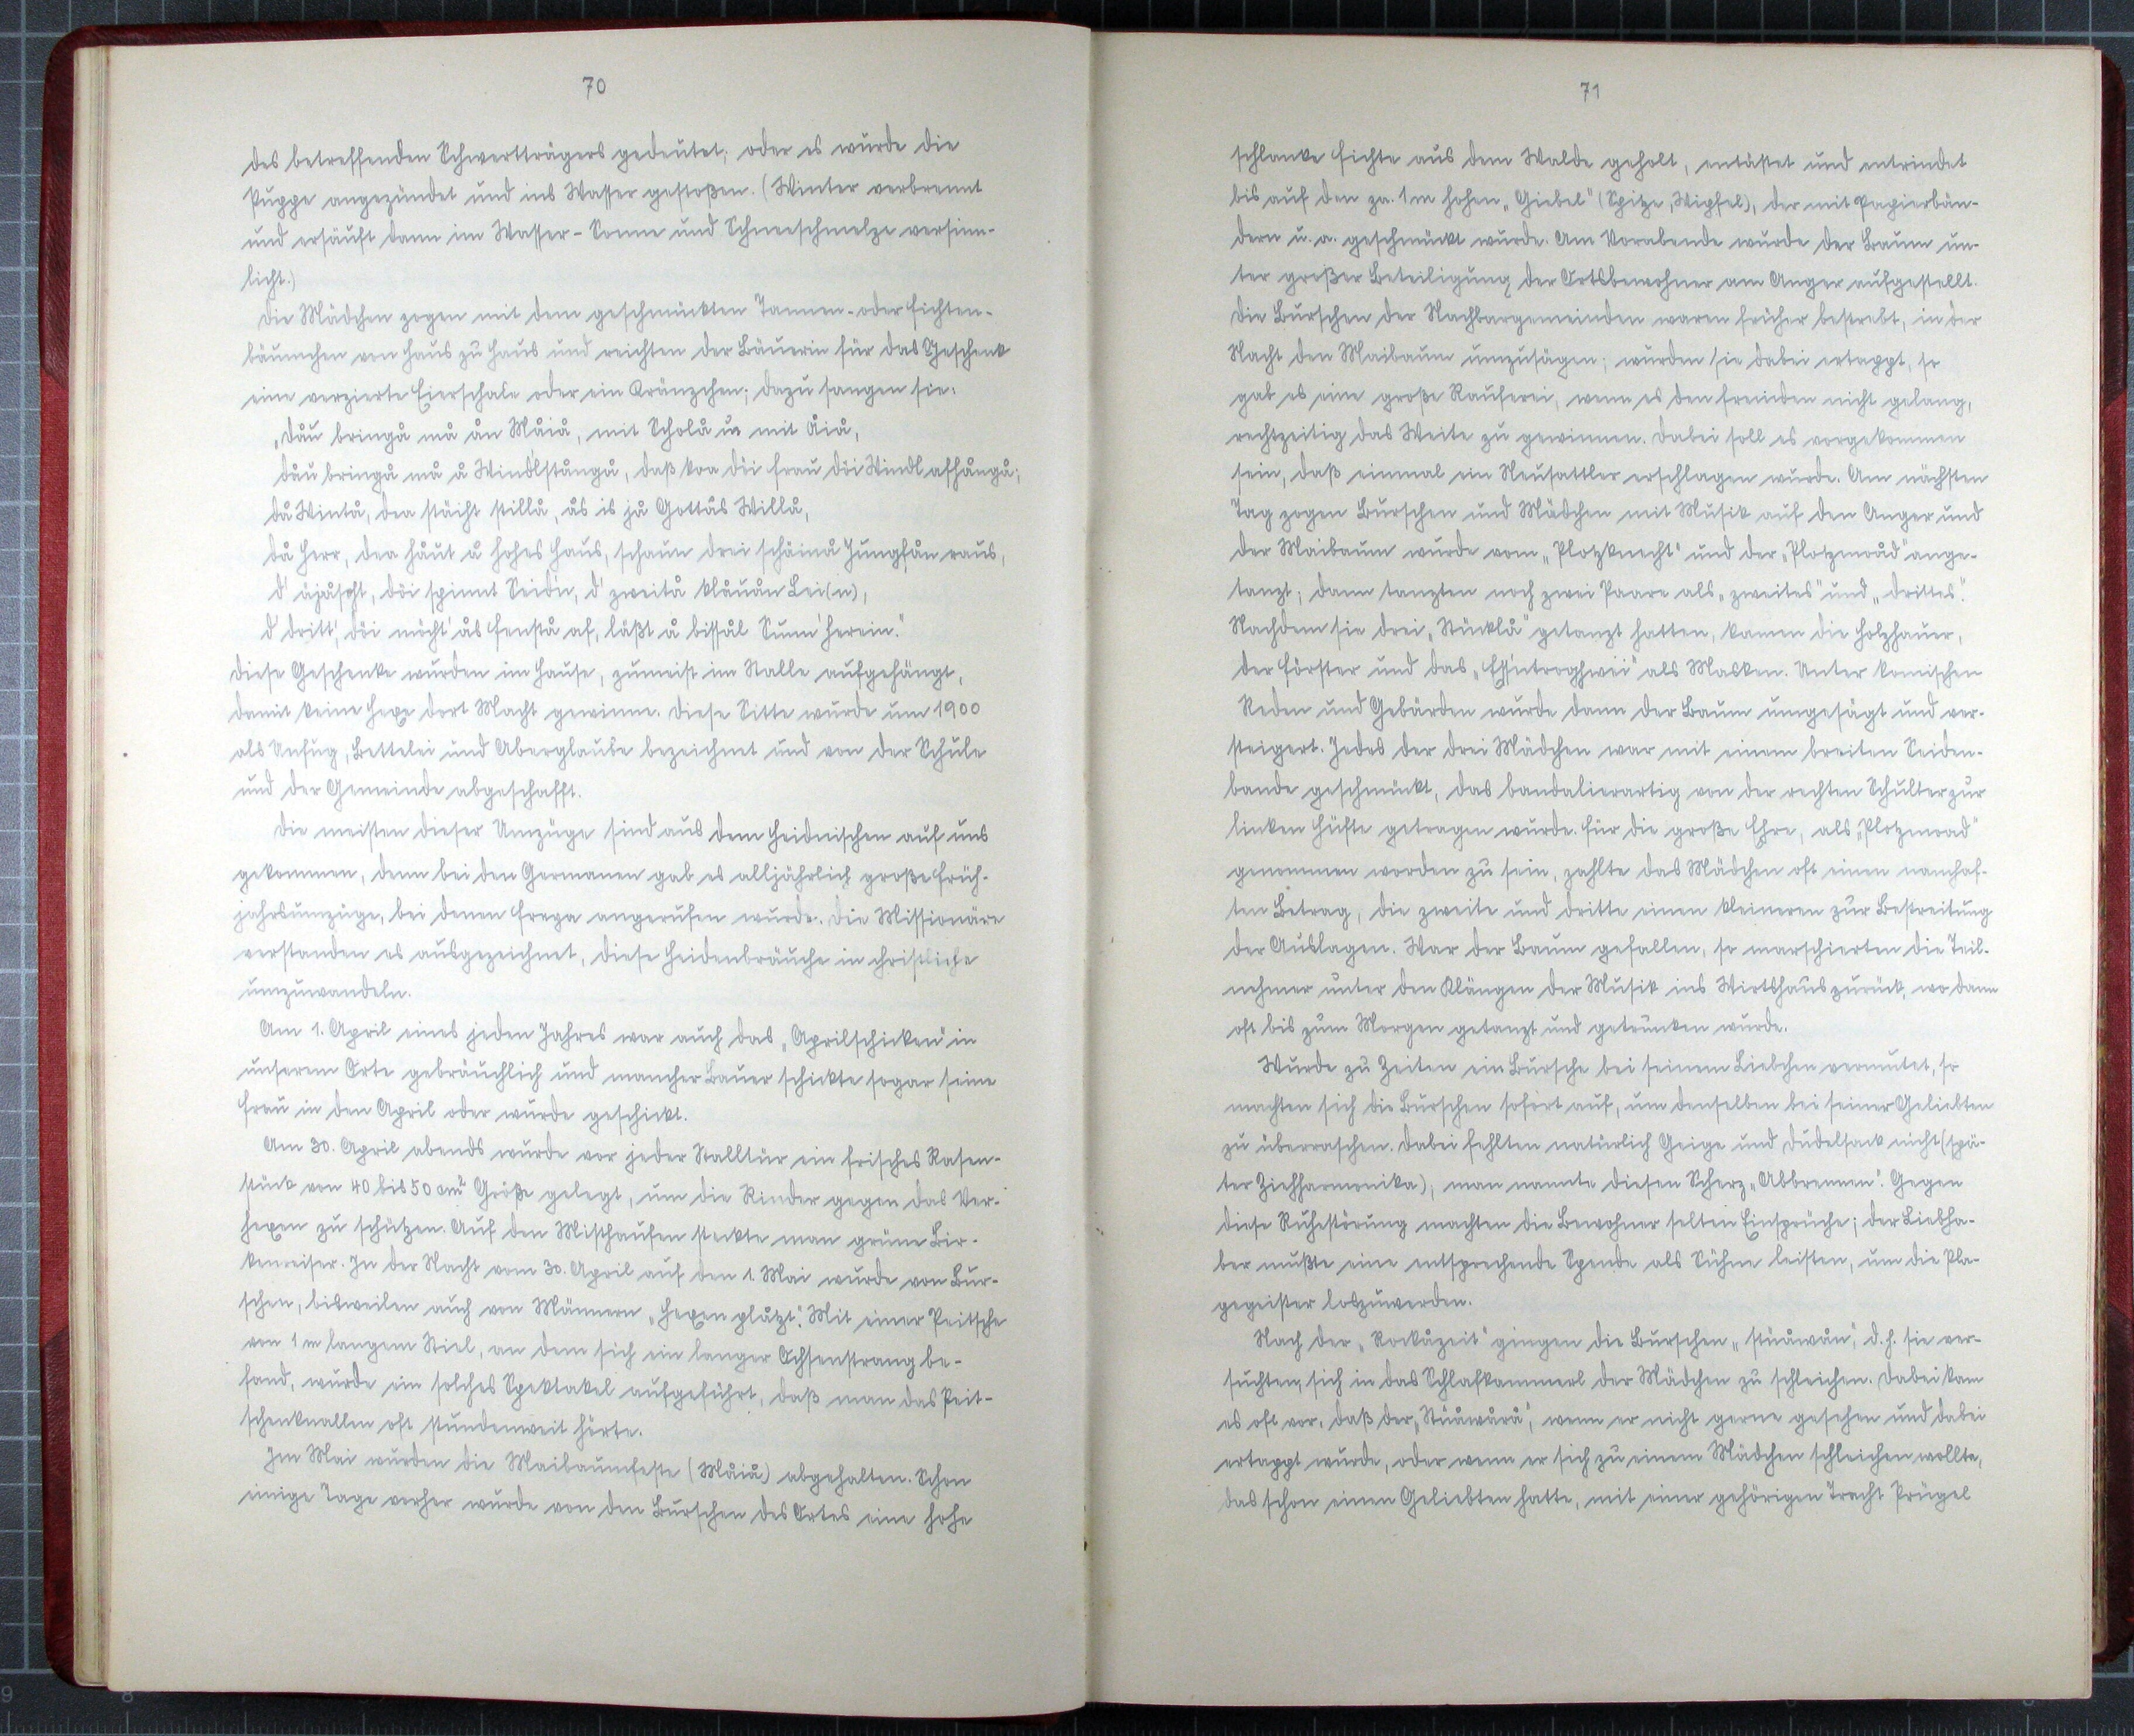 70
des betreffenden Schwertträgers gedeutet; oder es wurde die
Puppe angezündet und ins Wasser gestoßen. (Winter verbrennt
und ersäuft dann im Wasser - Sonne und Schneeschmelze versinn-
licht.)
Die Mädchen zogen mit dem geschmückten Tannen- oder Fichten-
bäumchen von Haus zu Haus und reichten der Bäuerin für das Geschenk
eine verzierte Eierschale oder ein Kränzchen; dazu sangen sie:
„Dåu bringå må ån Måiå, mit Scholå un mit Åiå,
Dåu bringå må å Windlstångå, daß koa döi Frau döi Windl afhångå;
Då Wintå, dea stäiht stillå, ås is jå Gottås Willå,
Då Herr, dea håut å hohes Haus, schaun drei schäinå Jungfån raus,
D' äjåscht, döi spinnt Seid'n, d' zweitå klåuån Lei(n),
D' dritt', döi möcht' ås Fenstå af, läßt å bissål Sunn' herein."
Diese Geschenke wurden im Hause, zumeist im Stalle aufgehängt,
damit keine Hexe dort Macht gewinne. Diese Sitte wurde um 1900
als Unfug, Bettelei und Aberglaube bezeichnet und von der Schule
und der Gemeinde abgeschafft.
Die meisten dieser Umzüge sind aus dem Heidnischen auf uns
gekommen, denn bei den Germanen gab es alljährlich große Früh-
jahrsumzüge, bei denen Freya angerufen wurde. Die Missionäre
verstanden es ausgezeichnet, diese Heidenbräuche in christliche
umzuwandeln.
Am 1. April eines jeden Jahres war auch das „Aprilschicken" in
unserem Orte gebräuchlich und mancher Bauer schickte sogar seine
Frau in den April oder wurde geschickt.
Am 30. April abends wurde vor jeder Stalltür ein frisches Rasen-
stück von 40 bis 50 cm² Größe gelegt, um die Rinder gegen das Ver-
hexen zu schützen. Auf den Misthaufen steckte man grüne Bir-
kenreiser. In der Nacht vom 30. April auf den 1. Mai wurde von Bur-
schen, bisweilen auch von Männern „Hexen plåtzt". Mit einer Peitsche
von 1 m langem Stiel, an dem sich ein langer Ochsenstrang be-
fand, wurde ein solches Spektakel aufgeführt, daß man das Peit-
schenknallen oft stundenweit hörte.
Im Mai wurden die Maibaumfeste (Måiå) abgehalten. Schon
einige Tage vorher wurde von den Burschen des Ortes eine hohe
71
schlanke Fichte aus dem Walde geholt, entästet und entrindet
bis auf den za. 1 m hohen „Giebel" (Spitze, Wipfel), der mit Papierbän-
dern u. a. geschmückt wurde. Am Vorabende wurde der Baum un-
ter großer Beteiligung der Ortsbewohner am Anger aufgestellt.
Die Burschen der Nachbargemeinden waren früher bestrebt, in der
Nacht den Maibaum umzusägen; wurden sie dabei ertappt, so
gab es eine große Rauferei, wenn es den Fremden nicht gelang,
rechtzeitig das Weite zu gewinnen. Dabei soll es vorgekommen
sein, daß einmal ein Neusattler erschlagen wurde. Am nächsten
Tag zogen Burschen und Mädchen mit Musik auf den Anger und
der Maibaum wurde vom „Plotzknecht" und der „Plotzmoåd" ange-
tanzt; dann tanzten noch zwei Paare als „zweites" und „drittes".
Nachdem sie drei „Stücklå" getanzt hatten, kamen die Holzhauer,
der Förster und das „Ess'ntroghwei" als Masken. Unter komischen
Reden und Gebärden wurde dann der Baum umgesägt und ver-
steigert. Jedes der drei Mädchen war mit einem breiten Seiden-
bande geschmückt, das bandalierartig von der rechten Schulter zur
linken Hüfte getragen wurde. Für die große Ehre, als „Plotzmoad"
genommen worden zu sein, zahlte das Mädchen oft einen namhaf-
ten Betrag, die zweite und dritte einen kleineren zur Bestreitung
der Auslagen. War der Baum gefallen, so marschierten die Teil-
nehmer unter den Klängen der Musik ins Wirtshaus zurück, wo dann
oft bis zum Morgen getanzt und getrunken wurde.
Wurde zu Zeiten ein Bursche bei seinem Liebchen vermutet, so
machten sich die Burschen sofort auf, um denselben bei seiner Geliebten
zu überraschen. Dabei fehlten natürlich Geige und Dudelsack nicht (spä-
ter Ziehharmonika); man nannte diesen Scherz „Abbrennen". Gegen
diese Ruhestörung machten die Bewohner selten Einsprüche; der Liebha-
ber mußte eine entsprechende Spende als Sühne leisten, um die Pla-
gegeister loszuwerden.
Nach der „Rockåzeit" gingen die Burschen „stüåwån", d. h. sie ver-
suchten, sich in das Schlafkammerl der Mädchen zu schleichen. Dabei kam
es oft vor, daß der „Stüåwårå", wenn er nicht gerne gesehen und dabei
ertappt wurde, oder wenn er sich zu einem Mädchen schleichen wollte,
das schon einen Geliebten hatte, mit einer gehörigen Tracht Prügel